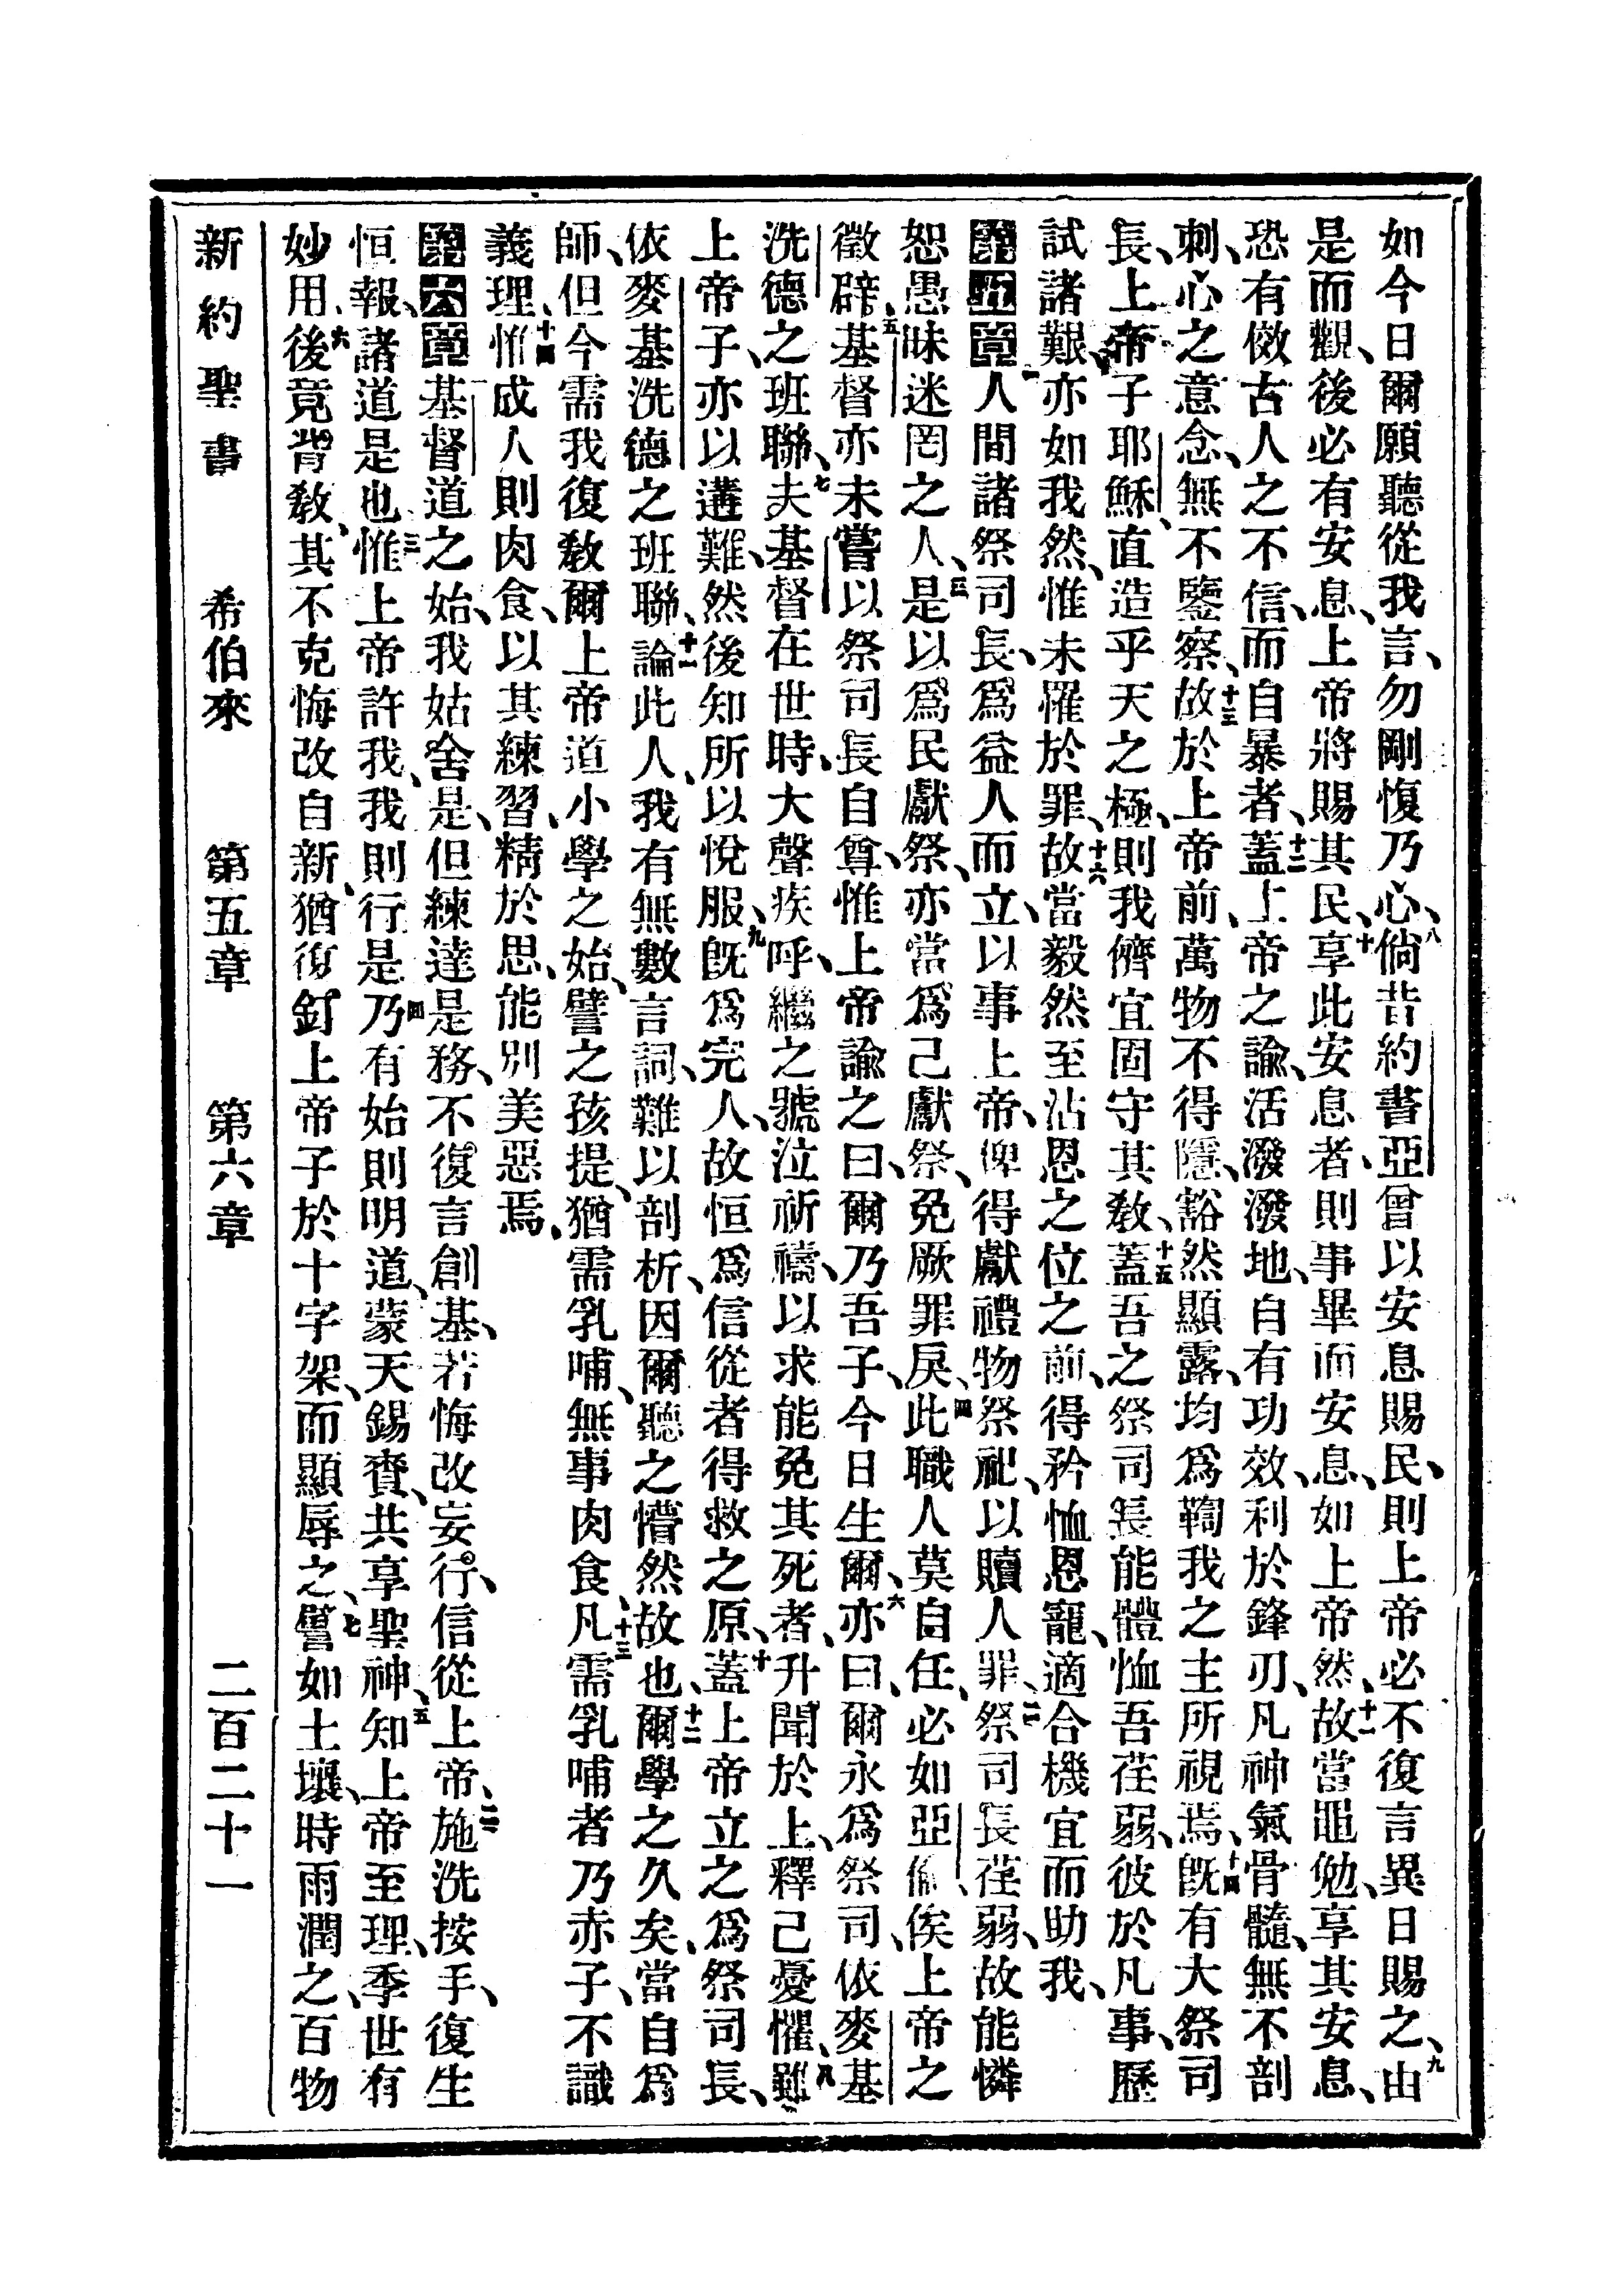 如今日爾願聽從我言、勿剛愎乃心、八倘昔約書亞曾以安息賜民、則上帝必不復言異日賜之、九由
是而觀、後必有安息、上帝將賜其民、十享此安息者、則事畢而安息、如上帝然、十一故當黽勉、享其安息、
恐有傚古人之不信、而自暴者、十二蓋上帝之諭、活潑潑地、自有功效、利於鋒刃、凡神氣骨髓、無不剖
刺、心之意念、無不鑒察、十三故於上帝前、萬物不得隱、豁然顯露、均爲鞫我之主所視焉、十四旣有大祭司
長、上帝子耶穌、直造乎天之極、則我儕宜固守其教、十五蓋吾之祭司長能體恤吾荏弱、彼於凡事、歷
試諸艱、亦如我然、惟未罹於罪、十六故當毅然至沾恩之位之前、得矜恤恩寵、適合機宜而助我、
第五章一人間諸祭司長、爲益人而立、以事上帝、俾得獻禮物祭祀、以贖人罪、二祭司長荏弱、故能憐
恕愚昧迷罔之人、三是以爲民獻祭、亦當爲己獻祭、免厥罪戾、四此職人莫自任、必如亞倫、俟上帝之
徵辟、五基督亦未嘗以祭司長自尊、惟上帝諭之曰、爾乃吾子、今日生爾、六亦曰、爾永爲祭司、依麥基
洗德之班聯、七夫基督在世時、大聲疾呼、繼之號泣祈禱、以求能免其死者、升聞於上、釋己憂懼、八雖
上帝子、亦以遘難、然後知所以悅服、九旣爲完人、故恒爲信從者得救之原、十蓋上帝立之爲祭司長、
依麥基洗德之班聯、十一論此人、我有無數言詞、難以剖析、因爾聽之懵然故也、十二爾學之久矣、當自爲
師、但今需我復敎爾上帝道小學之始、譬之孩提、猶需乳哺、無事肉食、十三凡需乳哺者乃赤子、不識
義理、十四惟成人則肉食、以其練習、精於思、能別美惡焉、
第六章一基督道之始、我姑舍是、但練達是務、不復言創基、若悔改妄行、信從上帝、二施洗按手、復生
恒報、諸道是也、三惟上帝許我、我則行是、四乃有始則明道、蒙天錫賚、共享聖神、五知上帝至理、季世有
妙用、六後竟背敎、其不克悔改自新、猶復釘上帝子於十字架、而顯辱之、七譬如土壤、時雨潤之、百物
新約聖書　希伯來　第五章　第六章　二百二十一